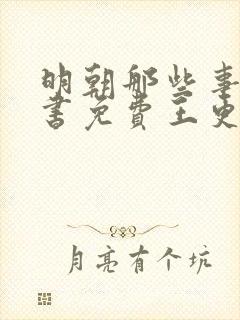 明朝那些事
书免费王史
月亮有个坑